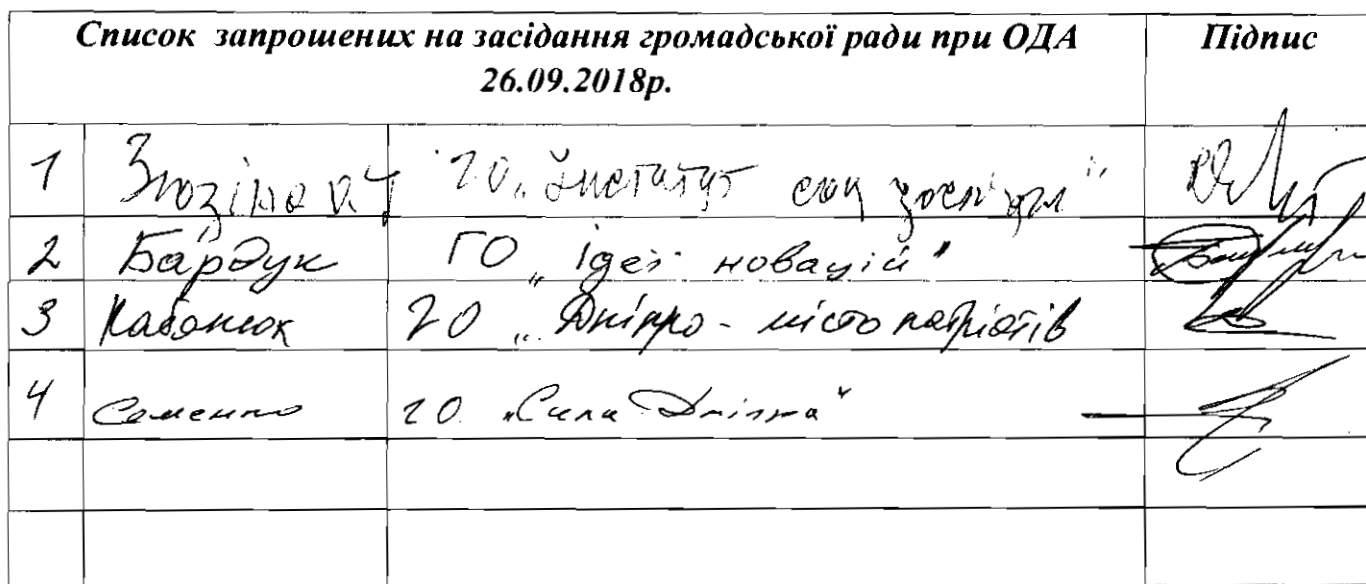 Список запрошених на засідання громадської ради при ОДА Підпис
26.09.2018р.
1 Зюзіна ГО „Інститут соц
2 Бардук ГО „Ідеї новацій"
3 Кабанюк ГО „Дніпро - місто патріотів
4 Семенко ГО „Сила Дніпра"